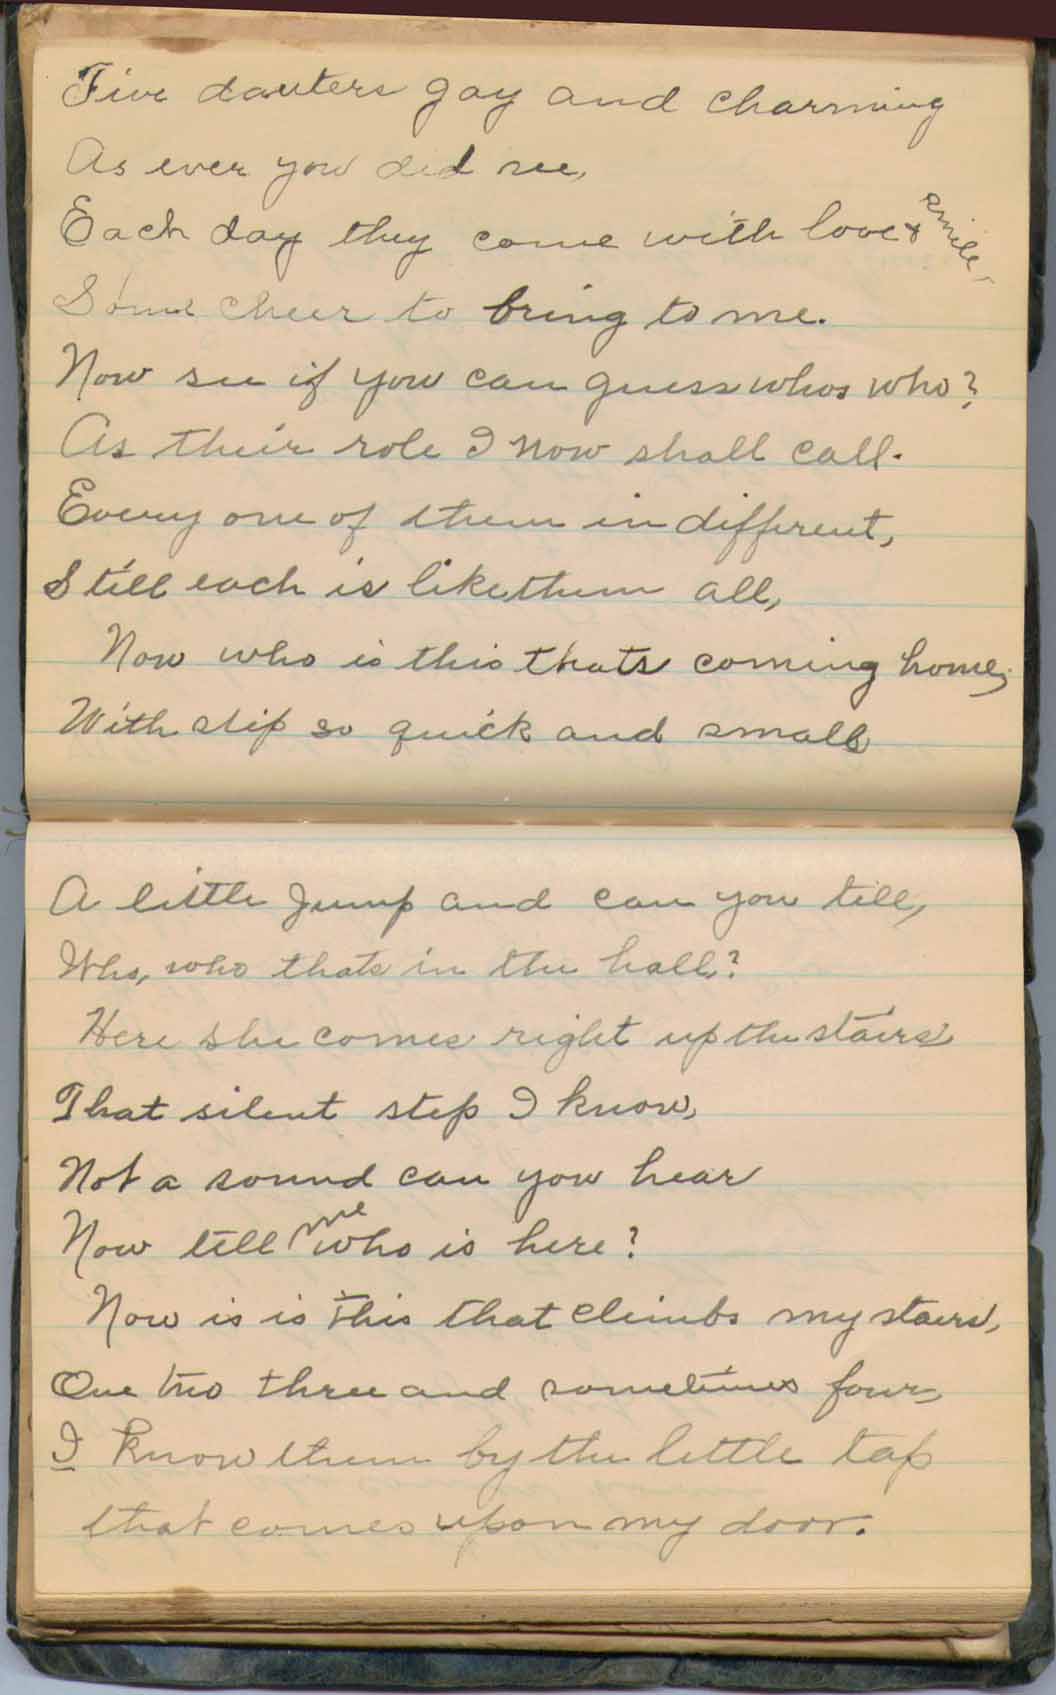 Five dauters gay and charming
As ever you did see,
Each day they come with love & smile,
Some cheer to bring to me.
Now see if you can guess whos who?
As their role I now shall call.
Every one of them in different,
Still each is like them all,
Now who is this thats coming home,
With step so quick and small
A little Jump and can you tell,
Who, who thats in the hall?
Here she comes right up the stairs
That silent step I know,
Not a sound can you hear
Now tell me who is here?
Now is is this that climbs my stairs,
One two three and sometimes four,
I know them by the little tap
that comes upon my door.